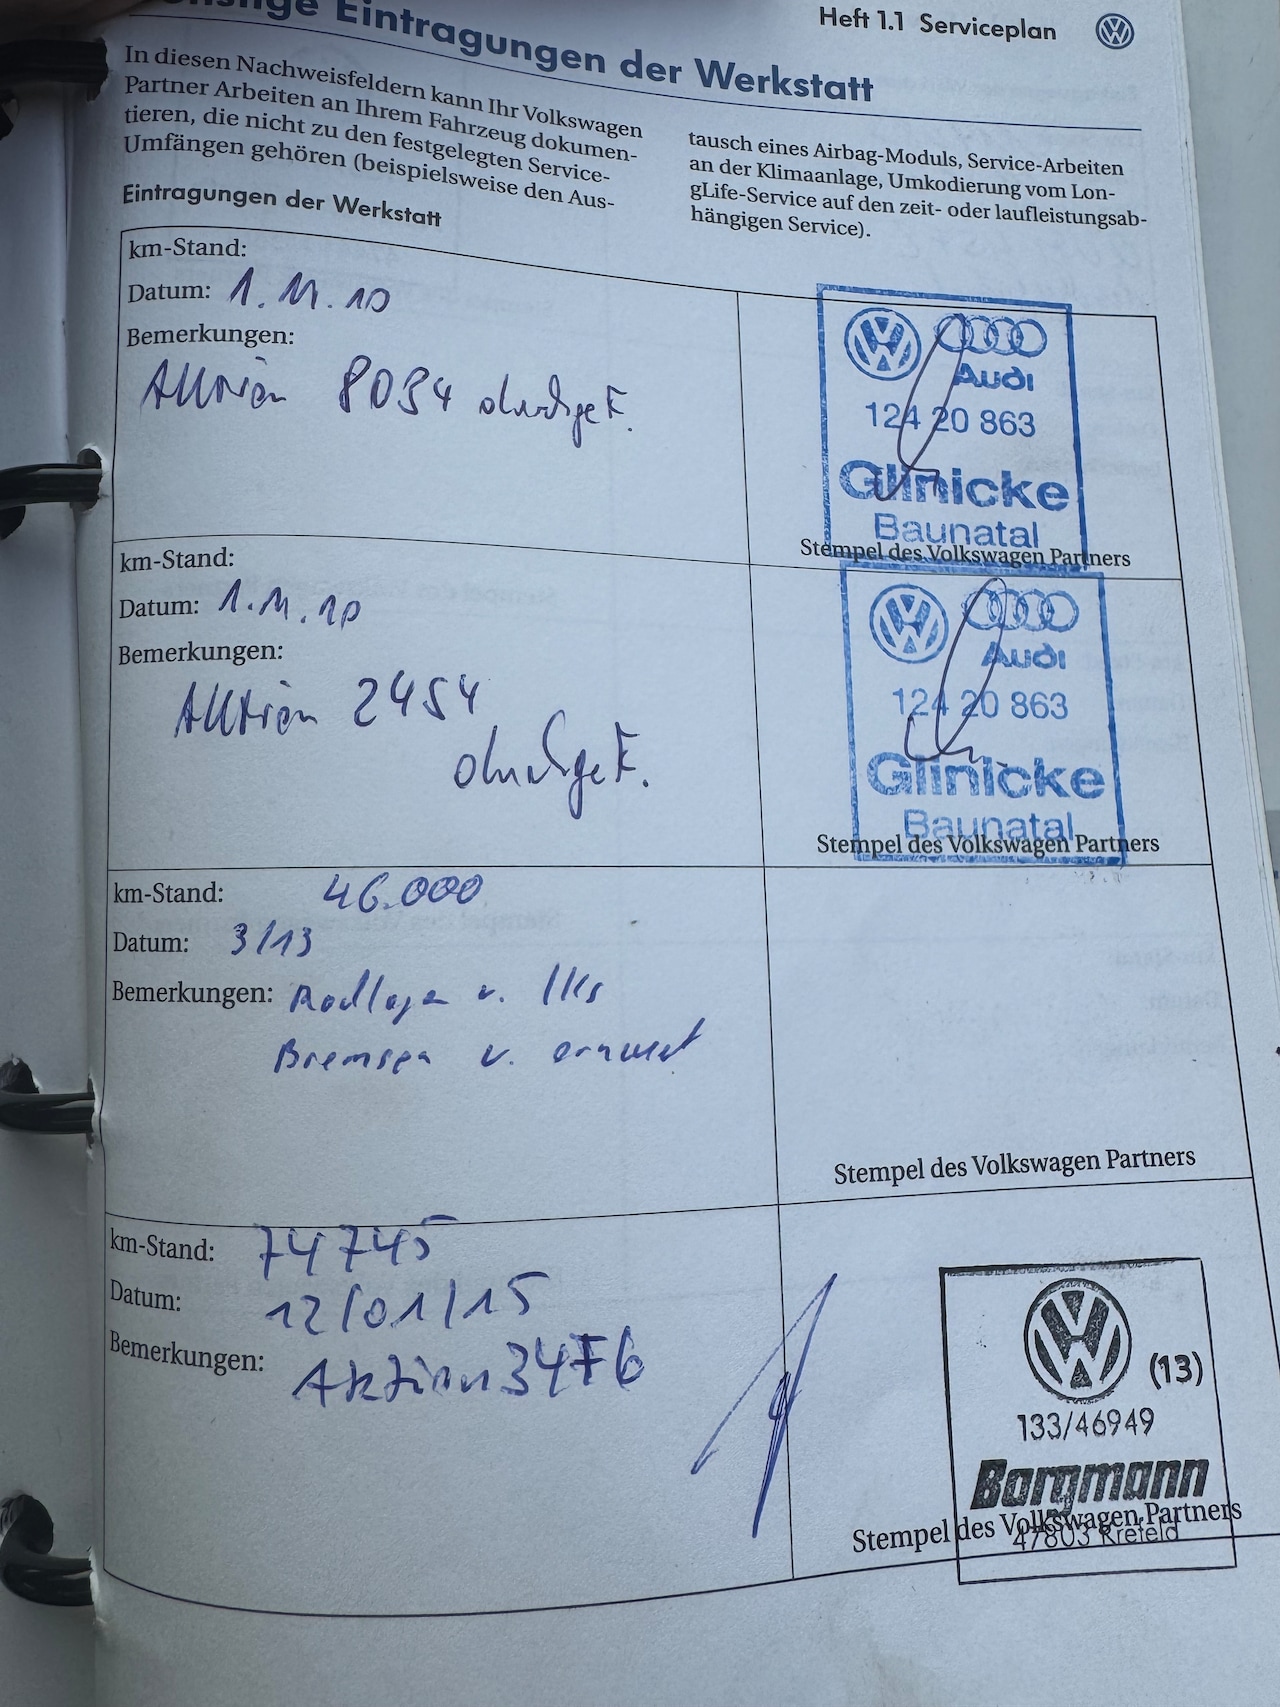 Eintragungen der Werkstatt
Heft 1.1 Serviceplan
In diesen Nachweisfeldern kann Ihr Volkswagen
Partner Arbeiten an Ihrem Fahrzeug dokumen-
tieren, die nicht zu den festgelegten Service-
Umfängen gehören (beispielsweise den Aus-
tausch eines Airbag-Moduls, Service-Arbeiten
an der Klimaanlage, Umkodierung vom Lon-
gLife-Service auf den zeit- oder laufleistungsab-
hängigen Service).
Eintragungen der Werkstatt
km-Stand:
Datum: 1.11.10
Bemerkungen:
Aktion 8034 durchgef.
Audi
124 20 863
Glinicke
Baunatal
Stempel des Volkswagen Partners
km-Stand:
Datum: 1.11.10
Bemerkungen:
Aktion 2454
durchgef.
Audi
124 20 863
Glinicke
Baunatal
Stempel des Volkswagen Partners
km-Stand: 46.000
Datum: 3/13
Bemerkungen: Radlager v.
Bremsen v. erneuert
Stempel des Volkswagen Partners
km-Stand: 74745
Datum: 12/01/15
Bemerkungen: Aktion 34F6
(13)
133/46949
Borgmann
47803 Krefeld
Stempel des Volkswagen Partners